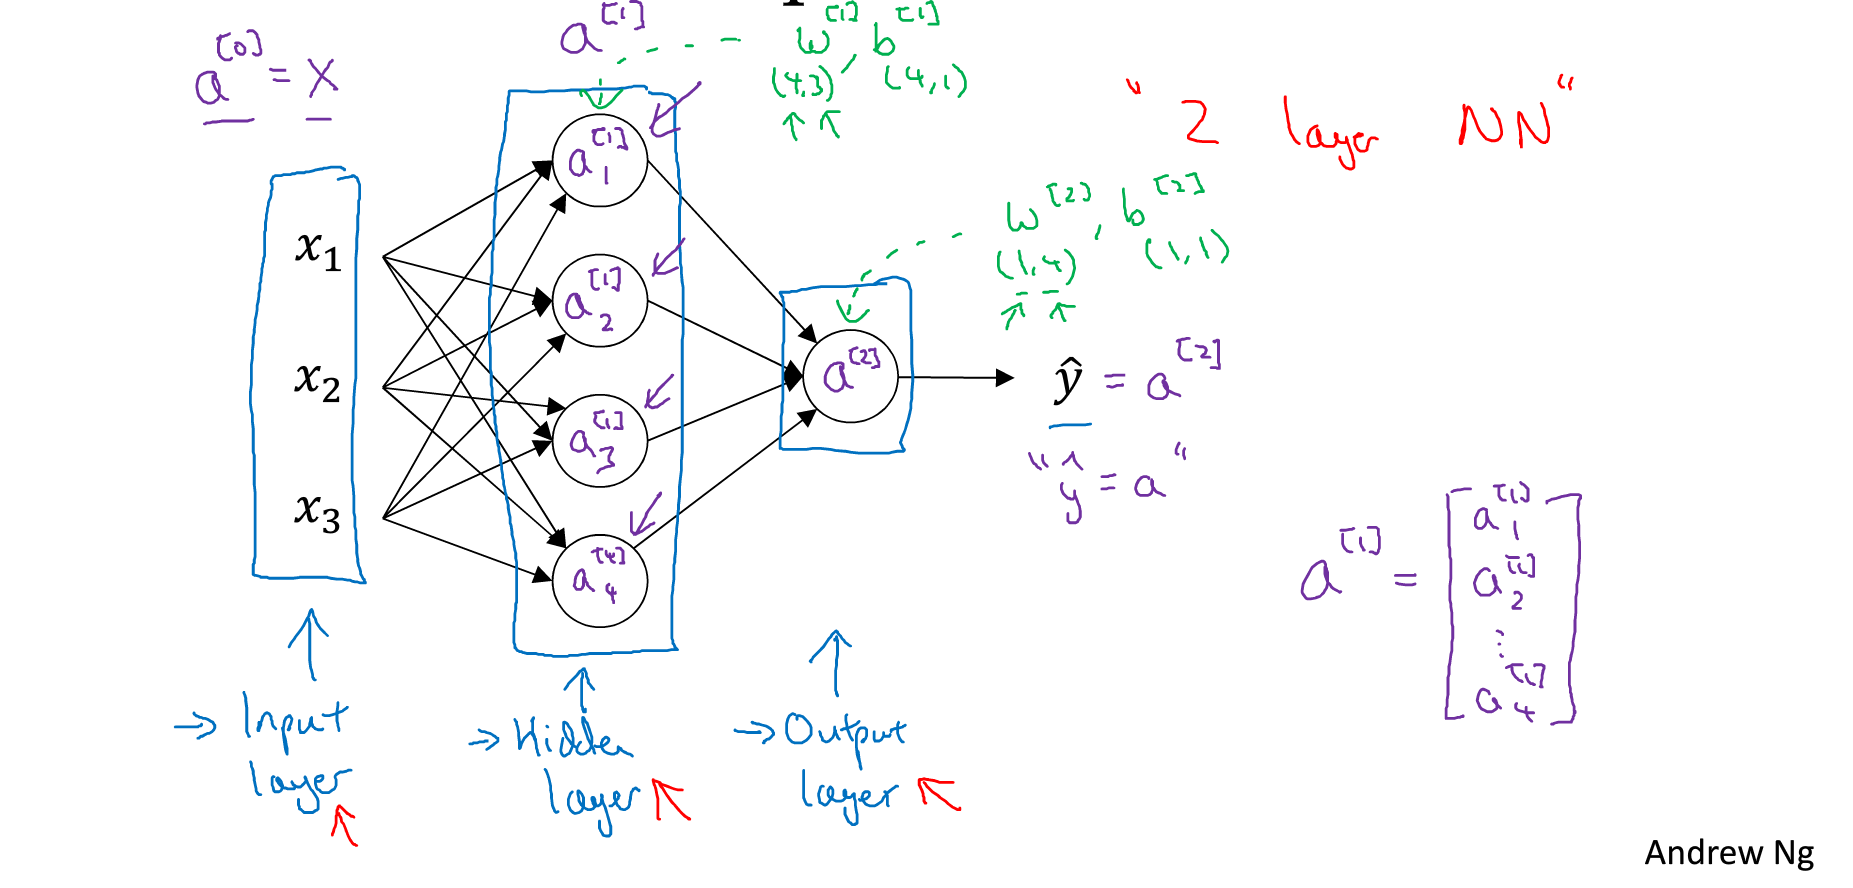 a^[0] = X
a^[1]
w^[1], b^[1]
(4,3) (4,1)
"2 layer NN"
x₁
x₂
x₃
a₁^[1]
a₂^[1]
a₃^[1]
a₄^[4]
w^[2], b^[2]
(1,4) (1,1)
a^[2]
ŷ = a^[2]
"ŷ = a"
a^[1] = [a₁^[1] a₂^[1] ⋮ a₄^[1]]
→ Input layer
→ Hidden layer
→ Output layer
Andrew Ng